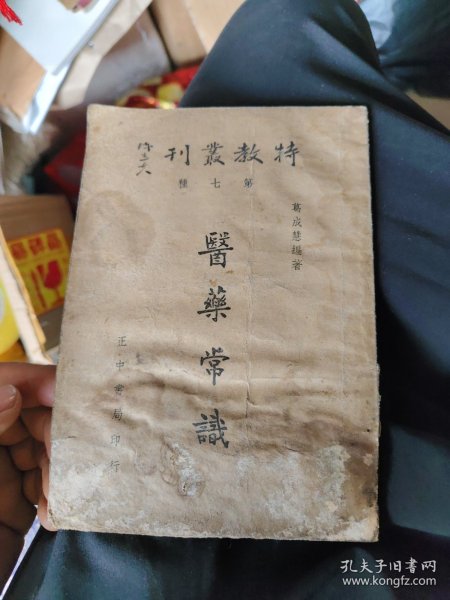 特教叢刊
第七種
葛成慧編著
醫藥常識
正中書局印行
孔夫子旧书网
www.kongfz.com